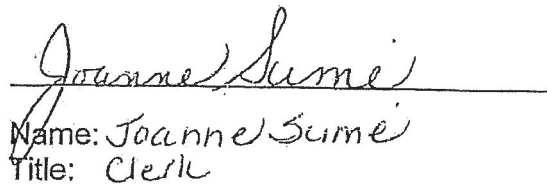 Joanne Sume
Name: Joanne Sume
Title: Clerk